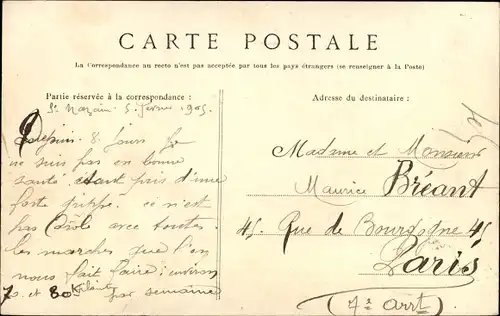 CARTE POSTALE
La Correspondance au recto n'est pas acceptée par tous les pays étrangers (se renseigner à la Poste)
Partie réservée à la correspondance :
Adresse du destinataire :
St Nazaire 5 Février 1905
Depuis 8 jours je
ne suis pas en bonne
santé étant pris d'une
forte grippe. ce n'est
pas drôle avec toutes
les marches que l'on
nous fait faire : environ
70 et 80 Kilomètres
par semaine
Madame et Monsieur
Maurice Bréant
45 Rue de Bourgogne 45
Paris
(7e arrt)